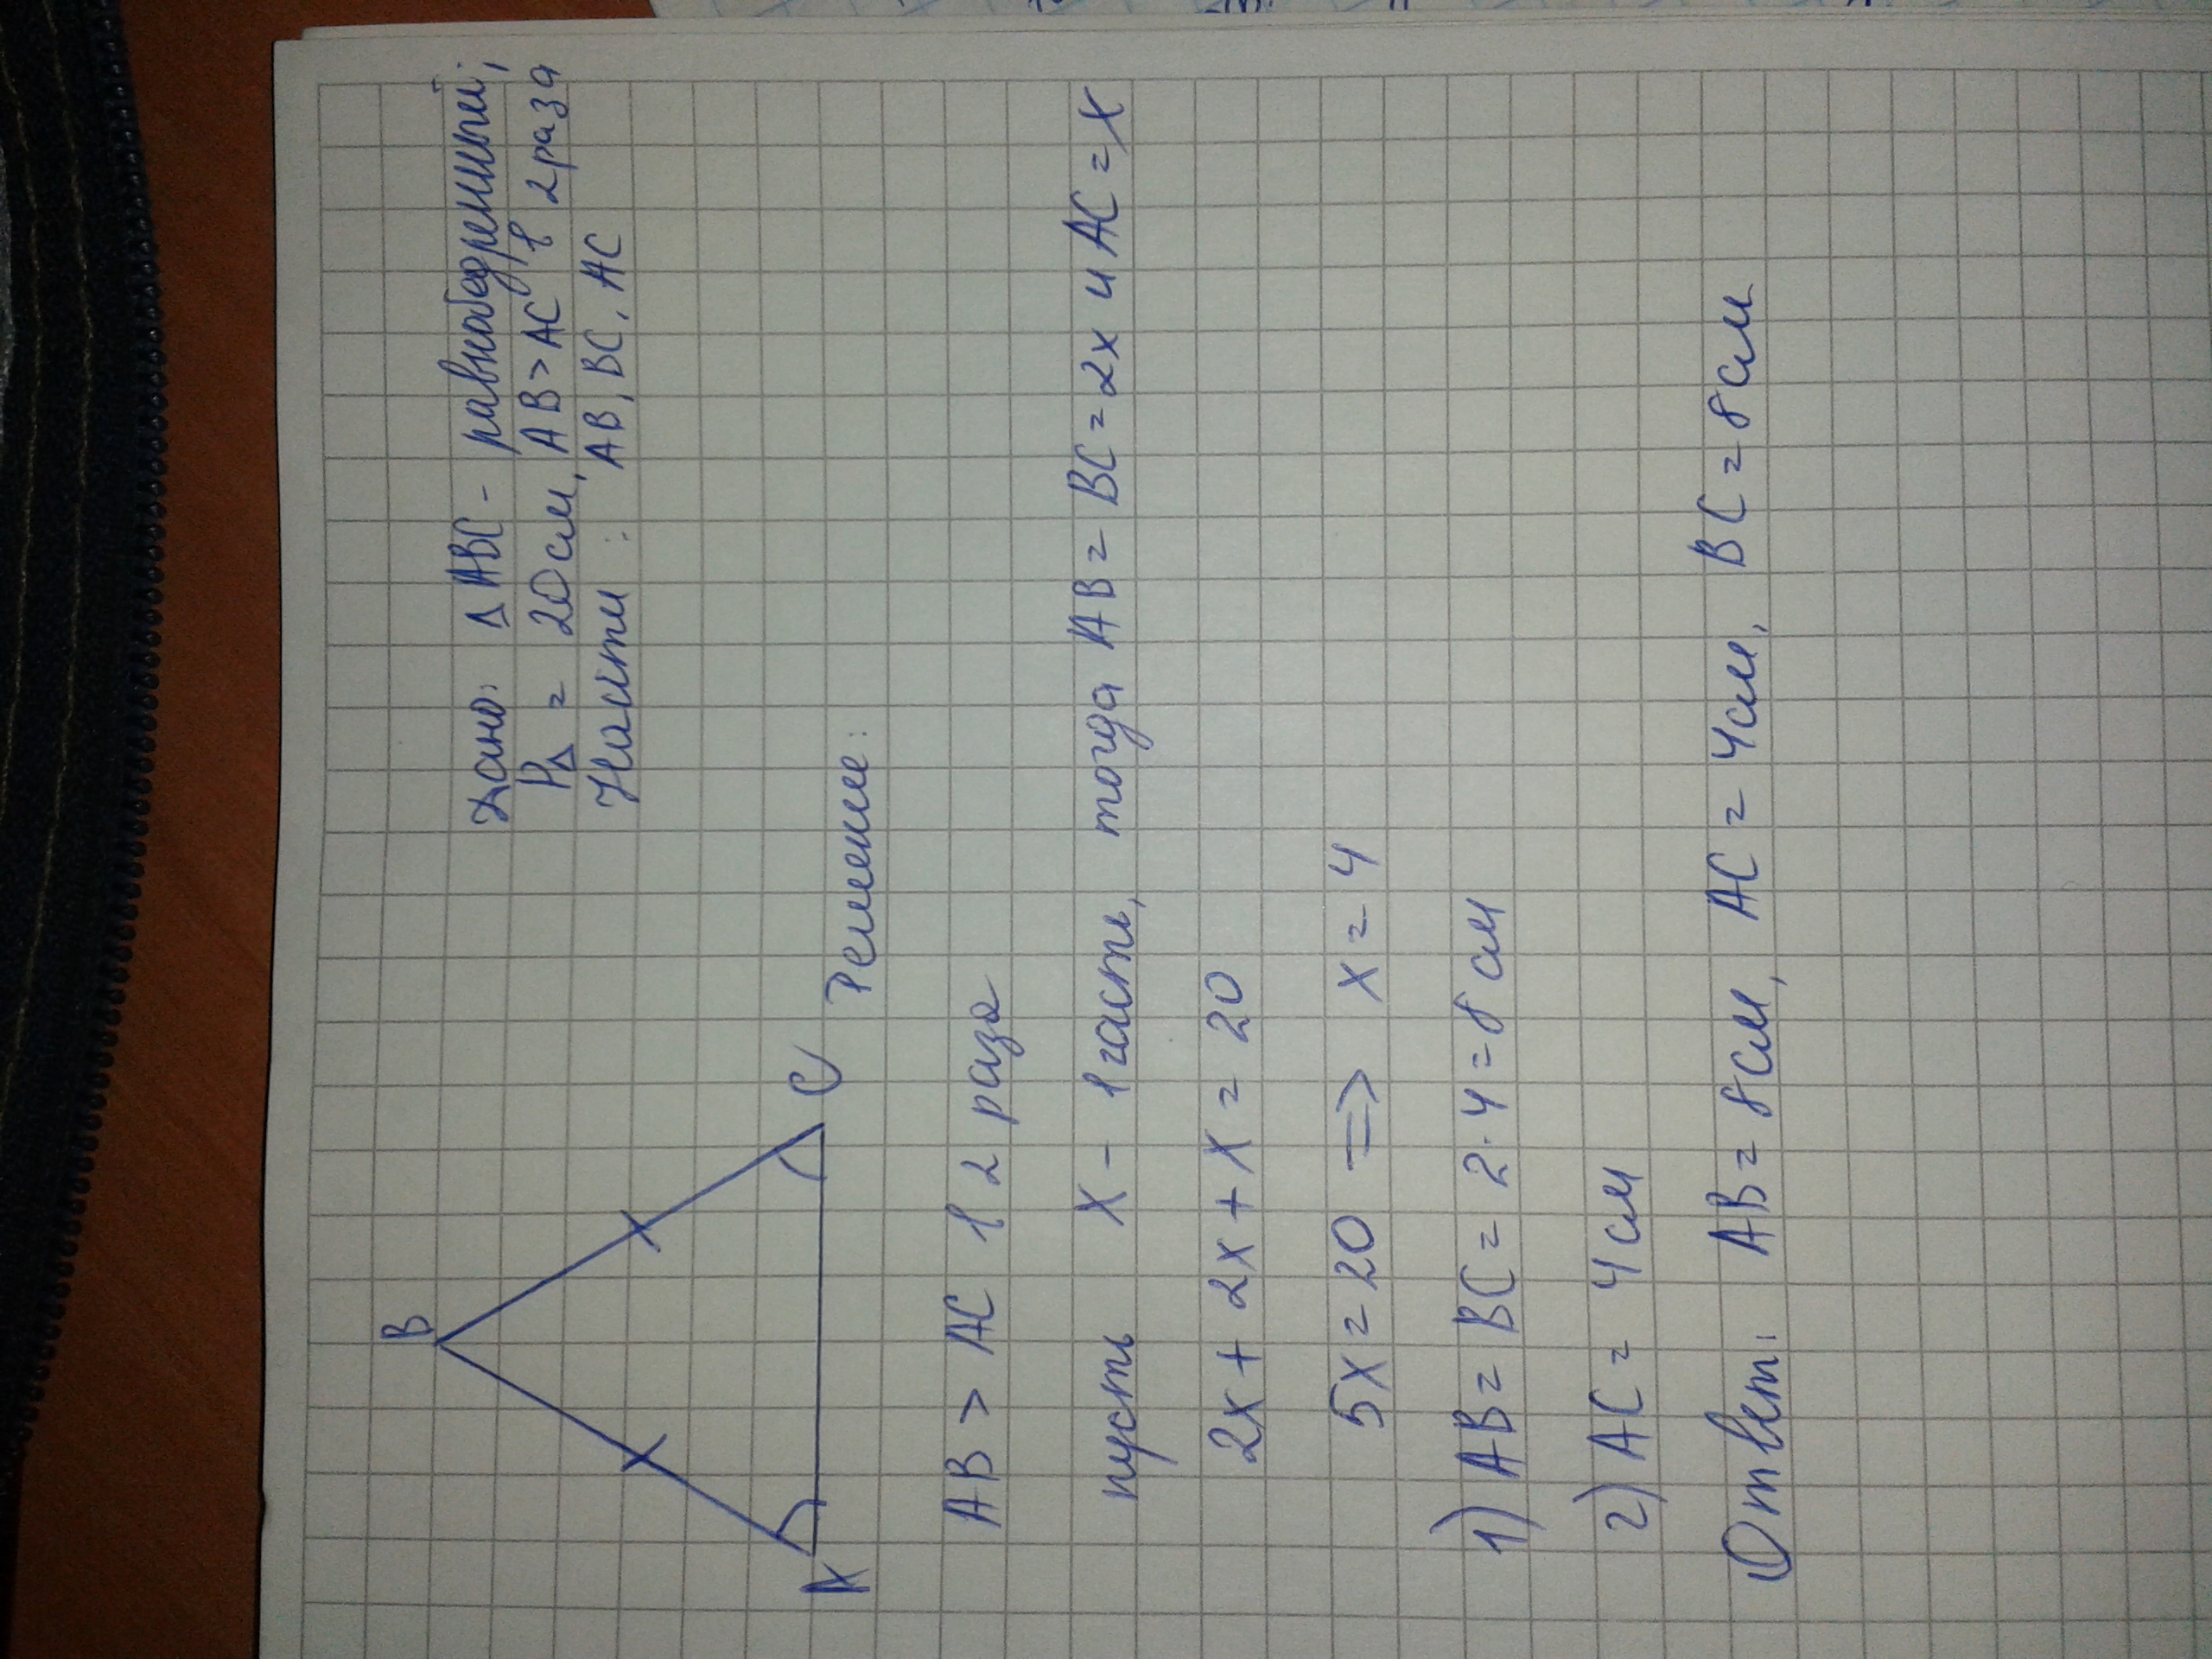 Дано: Δ ABC - равнобедренный;
PΔ = 20см, AB > AC в 2 раза
Найти: AB, BC, AC
B
A
C
Решение:
AB > AC в 2 раза
пусть x - 1 часть, тогда AB = BC = 2x и AC = x
2x + 2x + x = 20
5x = 20 => x = 4
1) AB = BC = 2·4 = 8 см
2) AC = 4 см
Ответ: AB = 8см, AC = 4см, BC = 8см